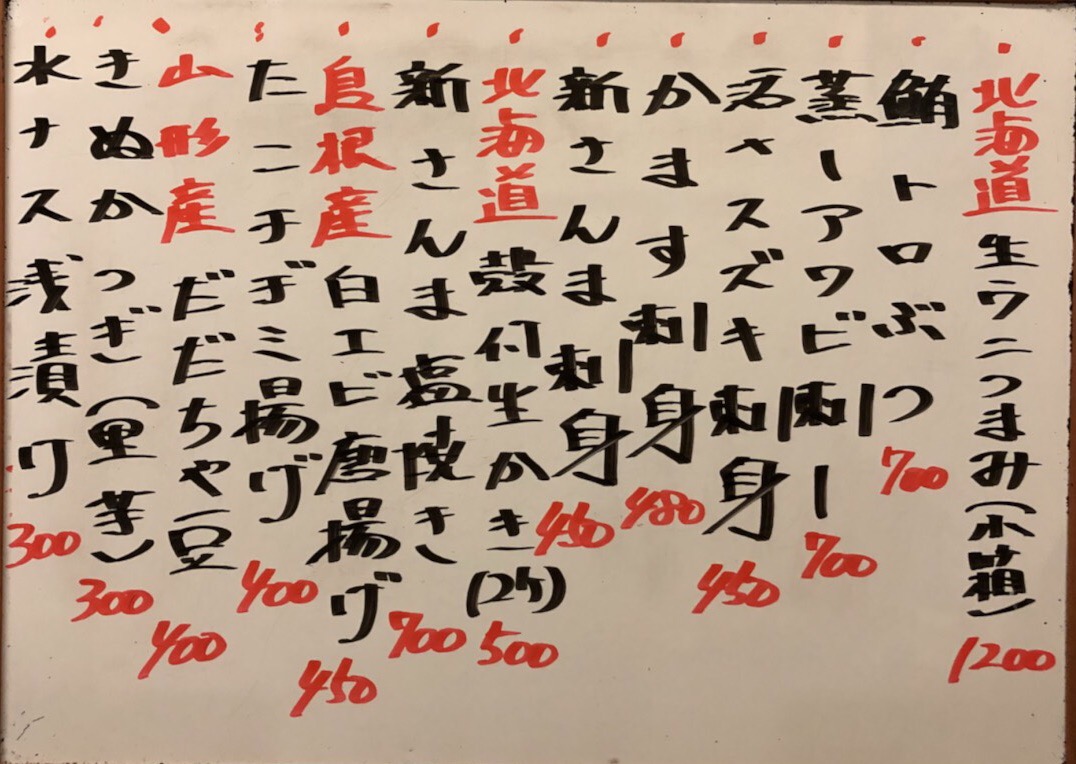 北海道 生ウニつまみ(小箱) 1200
鮪トロぶつ 700
蒸しアワビ刺し 700
活〆スズキ刺身 450
かます刺身 480
新さんま刺身 450
北海道 殻付生かき(2ケ) 500
新さんま塩焼き 700
島根産 白エビ唐揚げ 450
たこチヂミ揚げ 400
山形産 だだちゃ豆 400
きぬかつぎ(里芋) 300
水ナス浅漬り 300